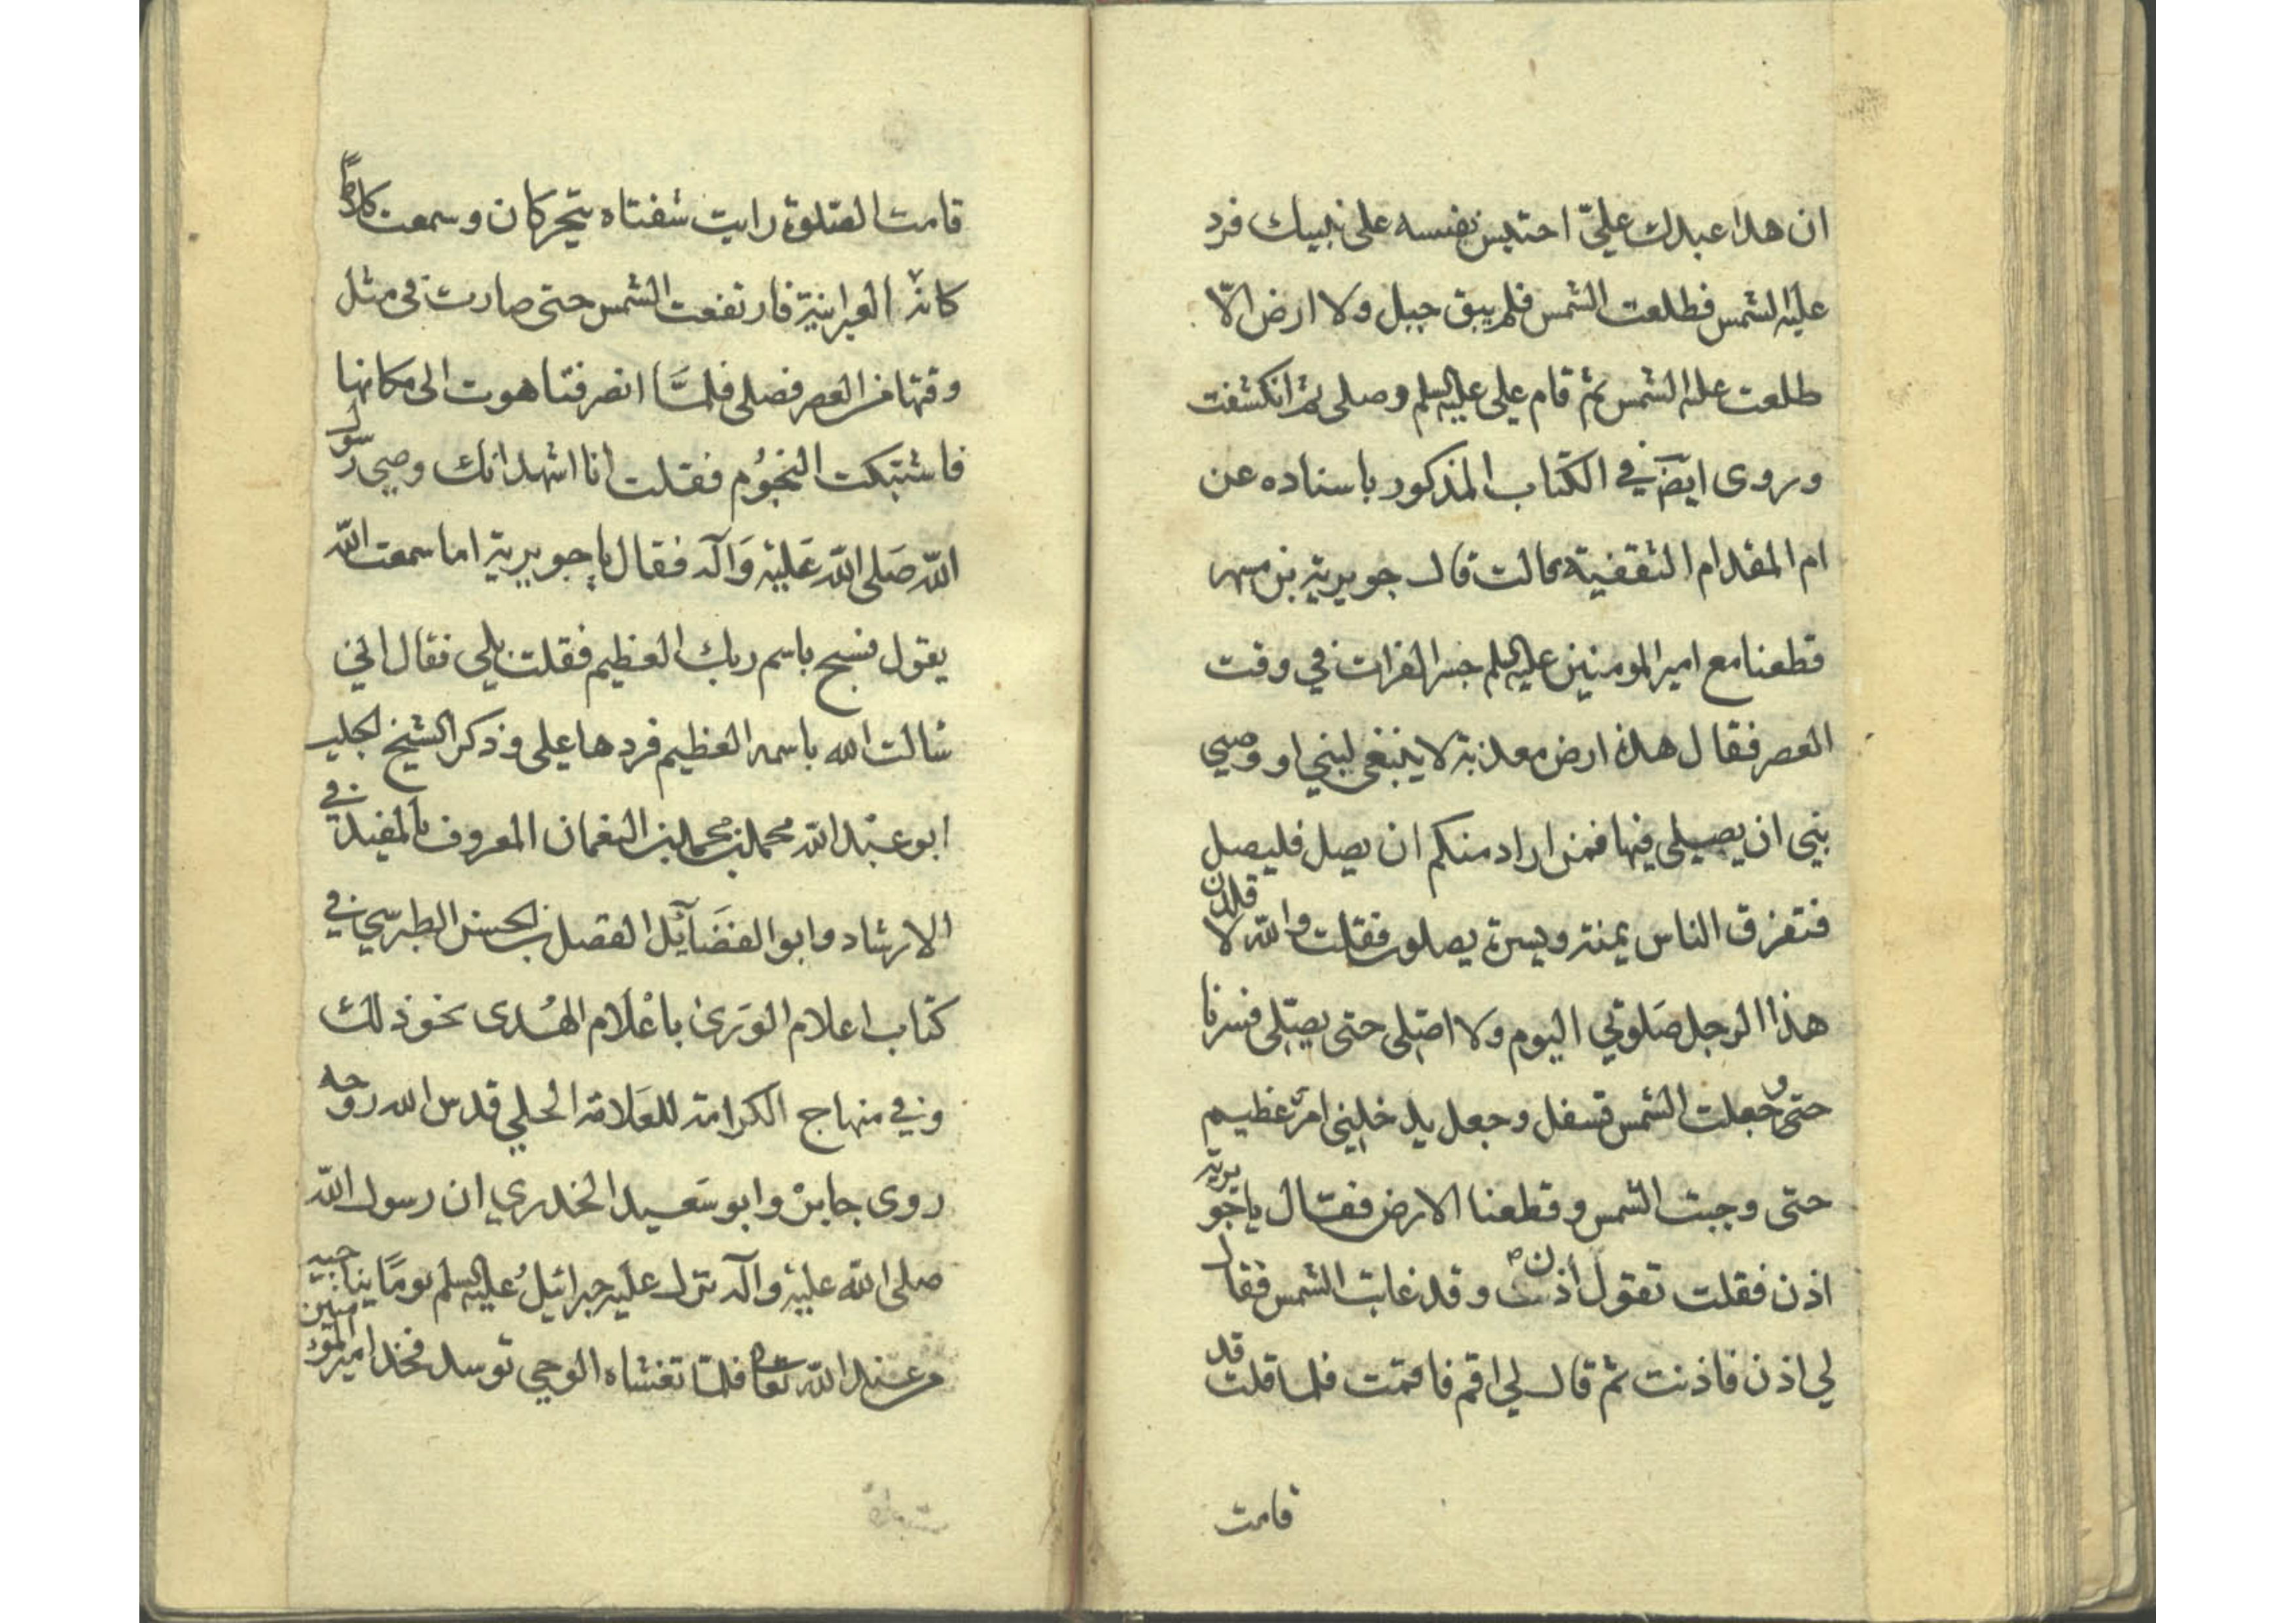 ان هذا عبدك علىّ احتبس بنفسه على نبيك فرد
عليه الشمس فطلعت الشمس فلم يبق جبل ولا ارض الّا
طلعت عليه الشمس ثم قام على عليه السلم وصلى ثم انكشفت
وروى ايضَ في الكتاب المذكور باسناده عن
ام المقدام الثقفية قالت قال جويرية بن مسهر
قطعنا مع امير المومنين عليه السلم جسر الفرات في وقت
العصر فقال هذه ارض معذبة لا ينبغى لنبي او وصي
نبي ان يصلى فيها فمن اراد منكم ان يصل فليصل
فتفرق الناس يمنة ويسرة يصلون فقلت والله لا قلدن
هذا الرجل صَلوتي اليوم ولا اصلى حتى يصلى فسرنا
حتى وجعلت الشمس تسفل وجعل يدخلنى امر عظيم
حتى وجبت الشمس وقطعنا الارض فقال يا جويرية
اذن فقلت تقول اذن وقد غابت الشمس فقال
لي اذن فاذنت ثم قال لي اقم فاقمت فلما قلت قد
قامت
قامت الصلوة رايت شفتاه يتحركان وسمعت كلاماً
كانه العبرانية فارتفعت الشمس حتى صارت فى مثل
وقتها من العصر فصلى فلمَّا انصرفنا هوت الى مكانها
فاشتبكت النجُوم فقلت انا اشهد انك وصي رسول
الله صَلى الله عَليْه وَاله فقال يا جويرية اما سمعت الله
يقول فسبح باسم ربك العظيم فقلت بلى فقال اني
سالت الله باسمه العظيم فردها على وذكر الشيخ الجليل
ابو عبْد الله محمد بن محمد بن النعمان المعروف بالمفيد في
الارشاد وابو الفضَائل الفضل بن الحسن الطبرسي في
كتاب اعلام الوَرىٰ باعْلَام الهُدى نحو ذلك
وفي منهاج الكرامة للعَلامة الحلي قدس الله روحه
روى جابر وابو سَعيد الخدري ان رسول الله
صلى الله عليْه واله نزل عليه جبرائيلُ عليه السلم يومًا يناجيه
من عند الله تعا فلمّا تغشاه الوحي توسد فخذ امير المؤمنين